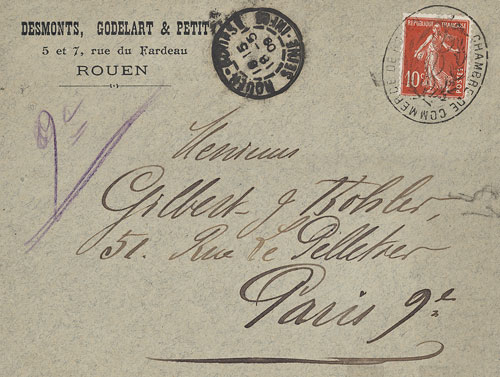 DESMONTS, GODELART & PETIT
5 et 7, rue du Fardeau
ROUEN
RÉPUBLIQUE FRANÇAISE
10c
POSTES
CHAMBRE DE COMMERCE DE
Messieurs
Gilbert & Kohler,
51. Rue Le Pelletier
Paris 9e